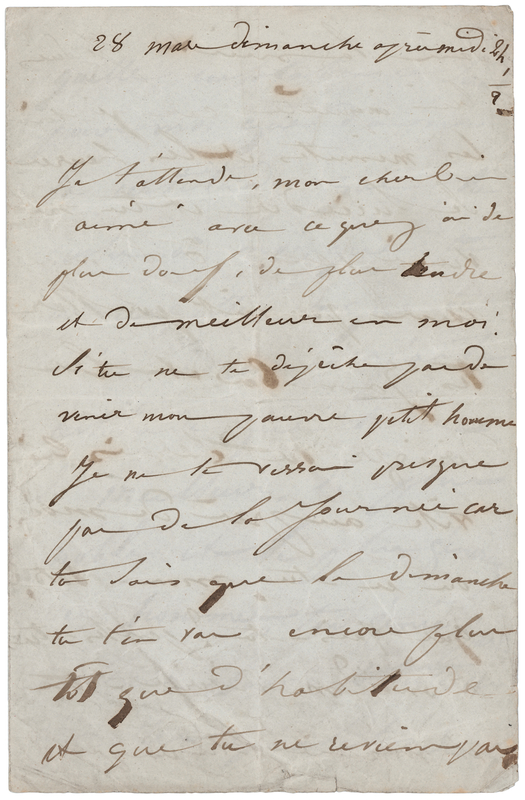 28 mars dimanche après midi 2h ½
Je t'attends, mon cher bien
aimé avec ce que j'ai de
plus doux, de plus tendre
et de meilleur en moi.
Si tu ne te dépêches pas de
venir mon pauvre petit homme
Je ne te verrai presque
pas de la Journée car
tu sais que le dimanche
tu t'en vas encore plus
tôt que d'habitude
et que tu ne reviens pas